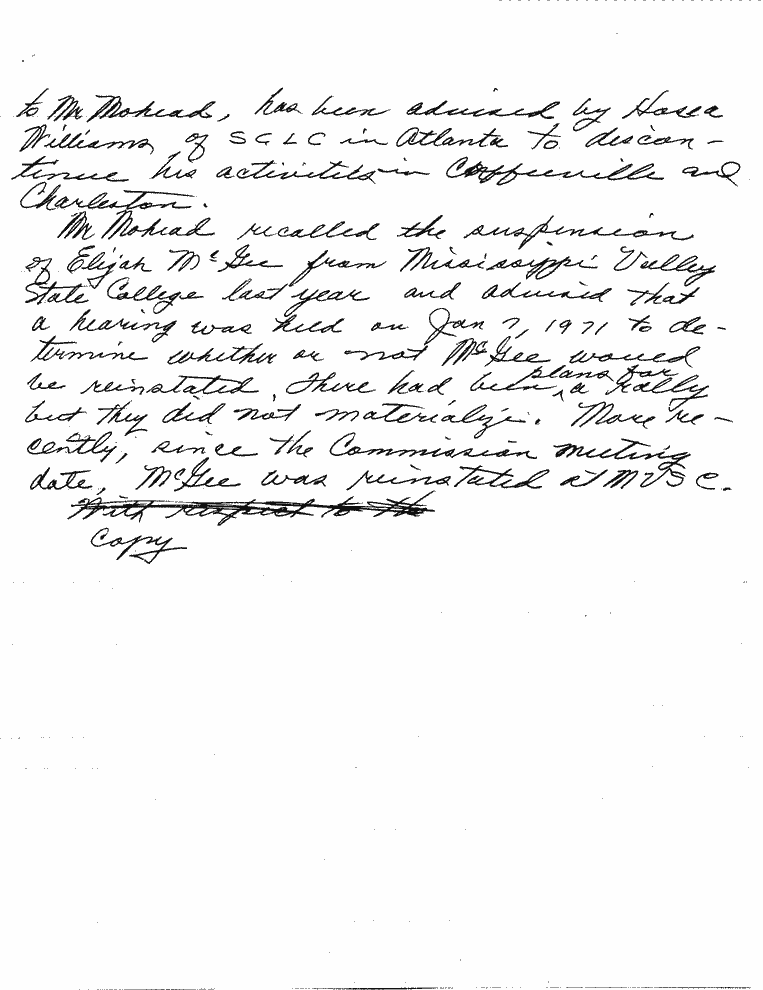 to Mr Mohead, has been advised by Hosea
Williams of SCLC in Atlanta to discon-
tinue his activities in Coffeeville and
Charleston.
Mr Mohead recalled the suspension
of Elijah McGee from Mississippi Valley
State College last year and advised that
a hearing was held on Jan 7, 1971 to de-
termine whether or not McGee would
be reinstated. There had been plans for a rally
but they did not materialize. More re-
cently, since the Commission meeting
date, McGee was reinstated at MVSC.
With respect to the
Copy